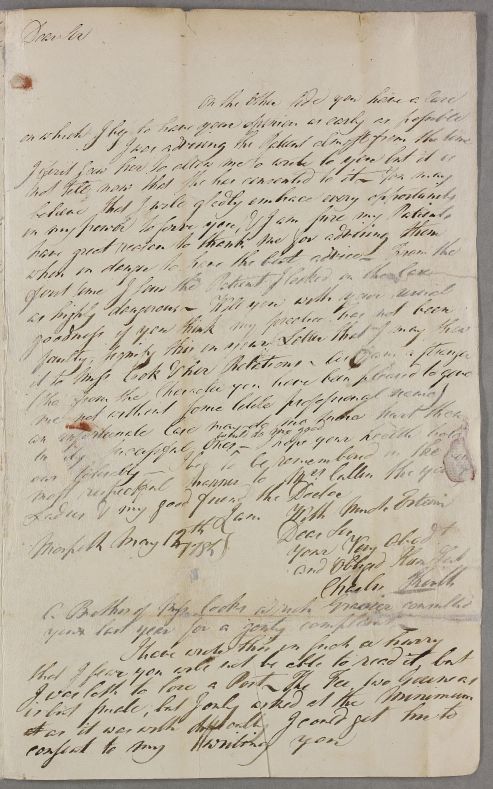 Dear Sir
On the other side you have a Case
on which I beg to have your opinion as early as possible
I was advising the Patient almost from the time
I first saw her to allow me to write to you but it is
not till now that she has consented to it – You may
believe that I will gladly embrace every opportunity
in my power to serve you, & I am sure my Patients
have great reason to thank me for advising them
when in danger to have the best advice – From the
first time I saw the Patient I looked on the Case
as highly dangerous – Will you with your usual
goodness if you think my practice has not been
faulty, signify this in your Letter that I may shew
it to Miss Cook & her Relations – As I am a stranger
(tho' from the character you have been pleased to give
me not without some little professional merit)
an unfortunate Case may do me more hurt than
ten successful ones
does to me good
– I hope your health holds
out tolerably – I beg to be remembered in the
most respectful manner to Mrs Cullen the young
Ladies & my good friend the Doctor
I am With much Esteem
Dear Sir
Morpeth May 12th 178
Your Very Obedt
and Obliged Hum Sert
Charles
A Brother of Miss Cooks a rich Grocer consulted
you last year for a gouty complaint
I have wrote this in such a hurry
that I fear you will not be able to read it, but
I was loth to lose a Post – The Fee two Guineas
is but small, but I only asked at the Minimum
as it was with difficulty I could get him to
consent to my writing you